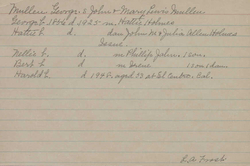 Mullen, George, s John & Mary Lewis Mullen
George b. 1864 d 1925 m. Hattie Holmes
Hattie b. d. dau John M & Julia Allen Holmes
Irene.
Nellie b. d. m Phillip Johns, 1 son.
Bert b. d m Irene 1 son 1 dau
Harold b. d 1948, aged 52 at El Centro, Cal.
R.A. Frost